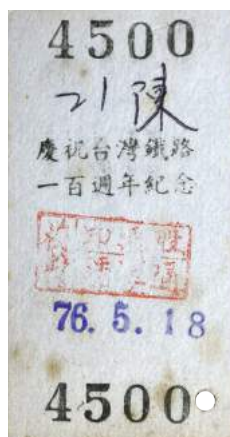 4500
21 陳
慶祝台灣鐵路
一百週年紀念
76. 5. 18
4500